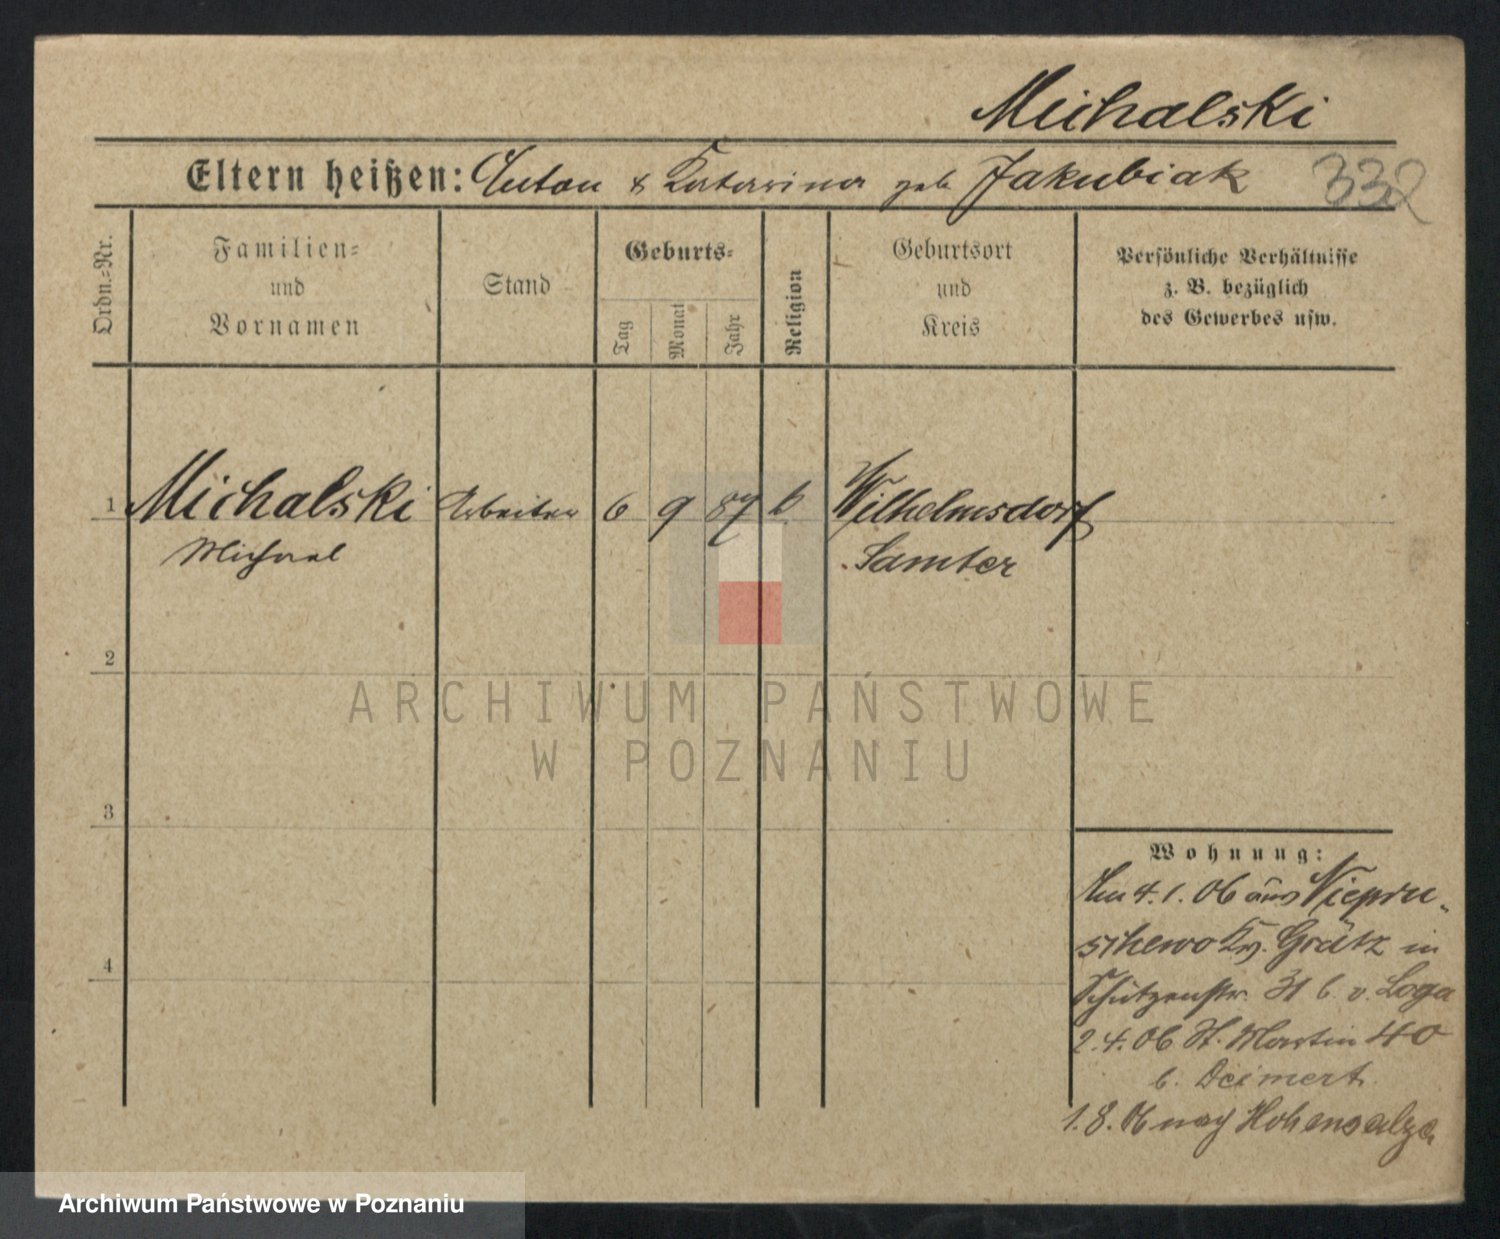 Michalski
Eltern heißen: Anton & Katarina geb Jakubiak 332
Ordn.=Nr.
Familien=
und
Vornamen
Stand
Geburts=
Tag
Monat
Jahr
Religion
Geburtsort
und
Kreis
Persönliche Verhältnisse
z. B. bezüglich
des Gewerbes usw.
1 Michalski Arbeiter 6 9 87 k Wilhelmsdorf
Michael Samter
2
ARCHIWUM PAŃSTWOWE
W POZNANIU
3
Wohnung:
Am 4.1.06 aus Niepru-
schewo Kr. Grätz in
4
Schützenstr. 31 b. v. Loga
2.4.06 St. Martin 40
b. Deimert
1.8.06 nach Hohensalza
Archiwum Państwowe w Poznaniu